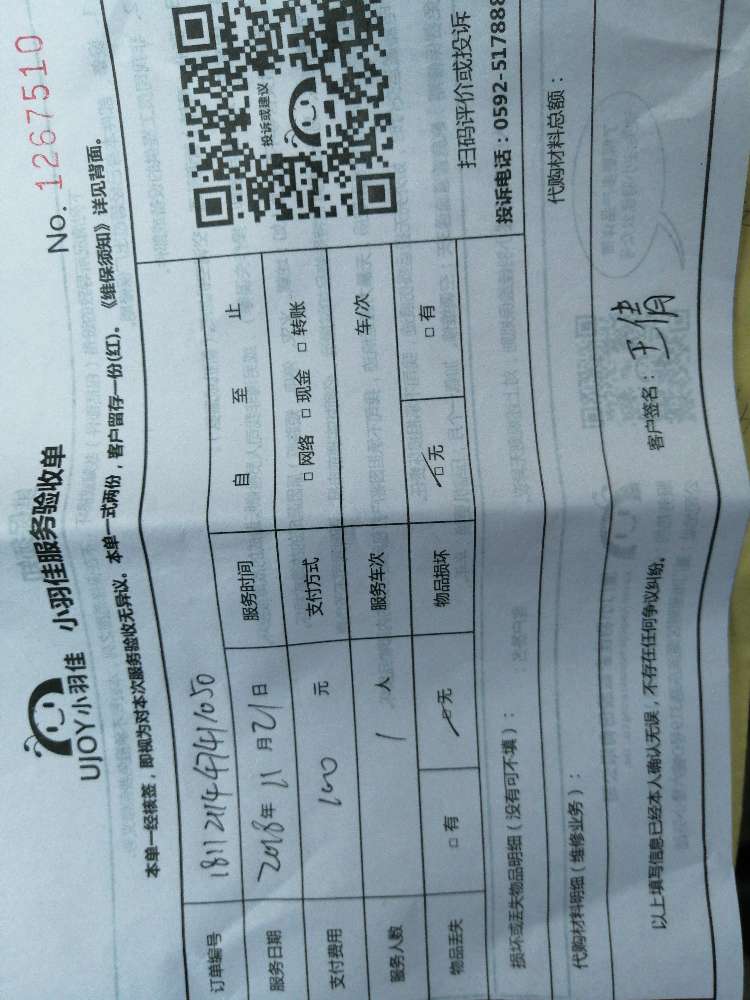 No. 1267510
UJOY小羽佳 小羽佳服务验收单
本单一经核签，即视为对本次服务验收无异议。本单一式两份，客户留存一份(红)。《维保须知》详见背面。
订单编号
服务日期 2018年 11月21日 服务时间 自 至 止
支付费用 100 元 支付方式 □ 网络 □ 现金 □ 转账
服务人数 1 人 服务车次 车/次
物品丢失 □ 有 □ 无 物品损坏 □ 无 □ 有
投诉或建议
扫码评价或投诉
投诉电话：0592-517888
损坏或丢失物品明细（没有可不填）：
代购材料明细（维修业务）： 代购材料总额：
以上填写信息已经本人确认无误，不存在任何争议纠纷。 客户签名：王倩